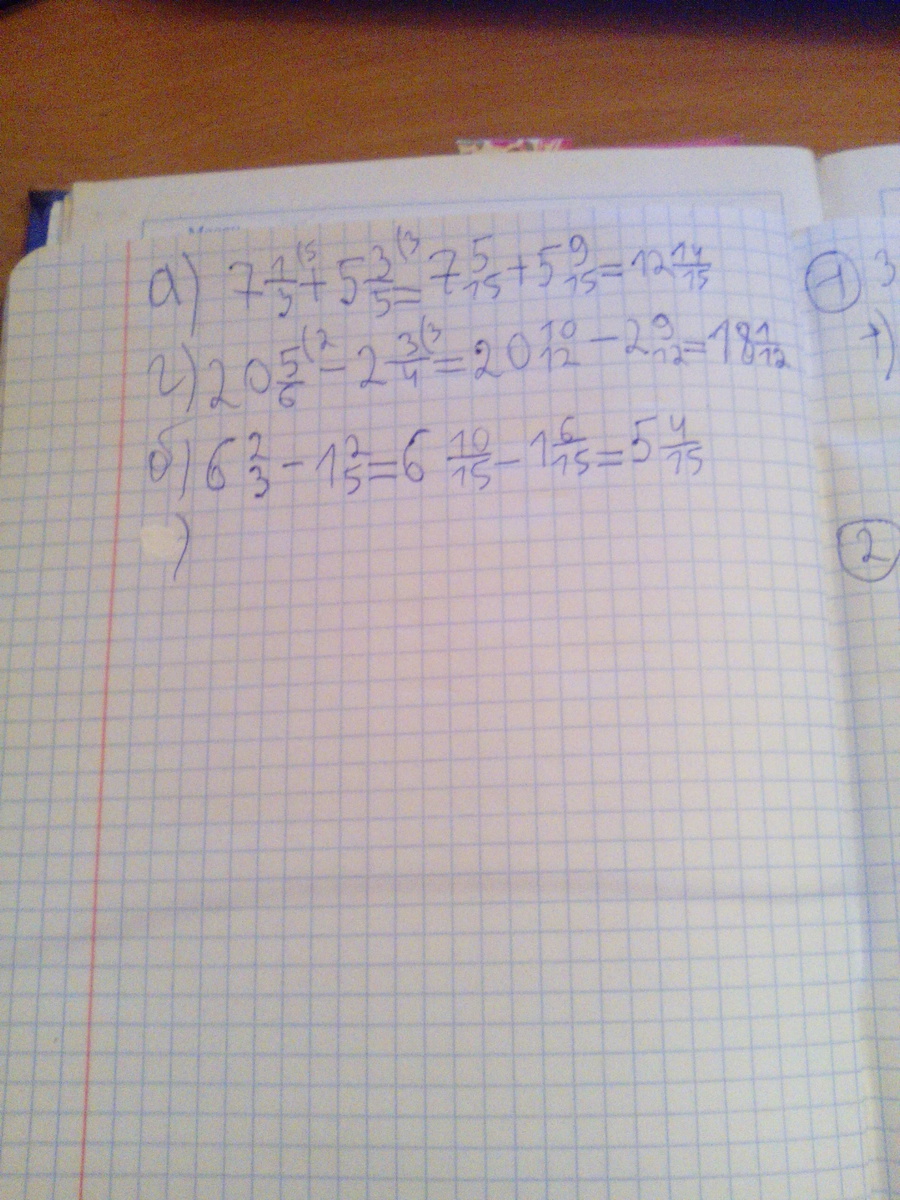 а) 7 1/3 (5 + 5 3/5 (3 = 7 5/15 + 5 9/15 = 12 14/15
г) 20 5/6 (2 - 2 3/4 (3 = 20 10/12 - 2 9/12 = 18 1/12
б) 6 2/3 - 1 2/5 = 6 10/15 - 1 6/15 = 5 4/15
)
1 3
2